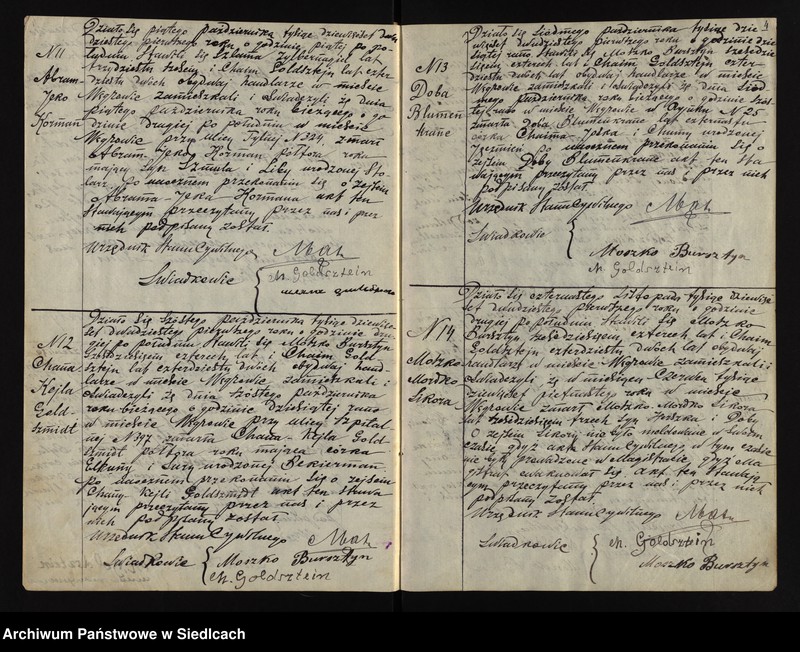 N 11
Abram-
Jcko
Korman
Działo się piątego października tysiąc dziewięćset dwu
dziestego pierwszego roku o godzinie piątej po po-
łudniu Stawili się Szlama Zylbernagiel lat
trzydzieści sześć i Chaim Goldsztejn lat czter
dzieści dwóch obydwaj handlarze w mieście
Węgrowie zamieszkali i świadczyli że dnia
piątego października roku bieżącego o go
dzinie drugiej po południu w mieście
Węgrowie przy ulicy N 324 zmarł
Abram Jcko Korman półtora roku
mający syn Szmula i Liby urodzonej Sto
larz. Po naocznem przekonaniu się o zejściu
Abrama-Jcka Kormana akt ten
stawającym przeczytany przez nas i przez
nich podpisany został.
Urzędnik Stanu Cywilnego
Świadkowie
Ch. Goldsztein
N 12
Chana-
Kejla
Gold-
szmidt
Działo się szóstego października tysiąc dziewię
set dwudziestego pierwszego roku o godzinie dru
giej po południu Stawili się Moszko Bursztyn
sześćdziesięciu czterech lat i Chaim Gold
sztejn lat czterdzieści dwóch obydwaj hand
larze w mieście Węgrowie zamieszkali i
świadczyli że dnia szóstego października
roku bieżącego o godzinie dziesiątej rano
w mieście Węgrowie przy ulicy Szpital
nej N 347 zmarła Chana-Kejla Gold
szmidt półtora roku mająca córka
i Sury urodzonej Bekierman.
Po naocznem przekonaniu się o zejściu
Chany Kejli Goldszmidt akt ten stawa
jącym przeczytany przez nas i przez
nich podpisany został
Urzędnik Stanu Cywilnego
Świadkowie
Moszko Bursztyn
Ch. Goldsztein
4
N 13
Doba
Blumen
kranc
Działo się siódmego października tysiąc dzie
więćset dwudziestego pierwszego roku o godzinie dzie
siątej rano Stawili się Moszko Bursztyn sześćdzie
sięciu czterech lat i Chaim Goldsztejn czter
dzieści dwóch lat obydwaj handlarze w mieście
Węgrowie zamieszkali i świadczyli że dnia siód
mego października roku bieżącego o godzinie szós
tej rano w mieście Węgrowie w Rynku N 25
zmarła Doba Blumenkranc lat
córka Chaima-Joska i Chumy urodzonej
Jęczmień Po naocznem przekonaniu się o
zejściu Doby Blumenkranc akt ten sta
wającym przeczytany przez nas i przez nich
podpisany został
Urzędnik Stanu Cywilnego
Świadkowie
Moszko Bursztyn
Ch. Goldsztein
N 14
Moszko
Mordko
Sikora
Działo się czternastego Listopada tysiąc dziewię
set dwudziestego pierwszego roku o godzinie
drugiej po południu Stawili się Moszko
Bursztyn sześćdziesięciu czterech lat i Chaim
Goldsztejn czterdzieści dwóch lat obydwaj
handlarze w mieście Węgrowie zamieszkali i
świadczyli że w miesiącu Czerwcu tysiąc
dziewięćset roku w mieście
Węgrowie zmarł Moszko Mordko Sikora
lat sześćdziesiąt trzech syn Joszka i Doby
O zejściu Sikory nie było meldowane w swoim
czasie gdyż akta Stanu Cywilnego w tym czasie
nie były prowadzone w Magistracie, gdyż Ma
gistrat ewakuował się. Akt ten stawają
cym przeczytany przez nas i przez nich
podpisany został.
Urzędnik Stanu Cywilnego
Świadkowie
Ch. Goldsztein
Moszko Bursztyn
Archiwum Państwowe w Siedlcach